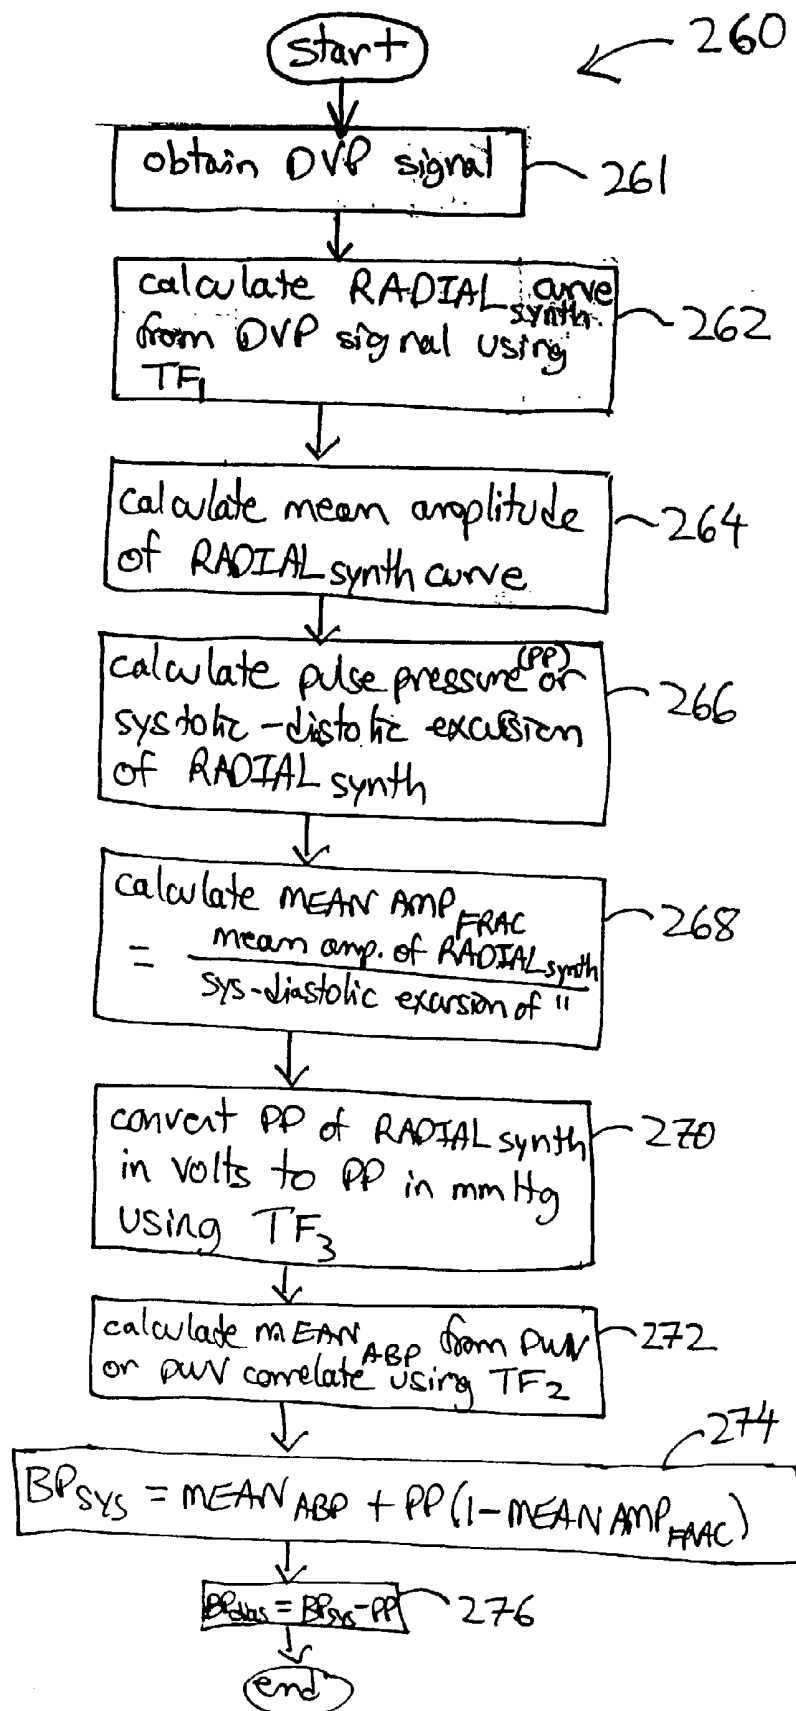 start
260
obtain DVP signal
261
calculate RADIAL synth curve
from DVP signal using
TF1
262
calculate mean amplitude
of RADIAL synth curve
264
calculate pulse pressure (PP) or
systolic-distolic excusion
of RADIAL synth
266
calculate MEAN AMP FRAC
= mean amp. of RADIAL synth
sys-diastolic excursion of "
268
convert PP of RADIAL synth
in volts to PP in mmHg
using TF3
270
calculate MEAN ABP from PWV
or PWV correlate using TF2
272
274
BPSYS = MEAN ABP + PP(1-MEAN AMP FRAC)
BPdias = BPsys-PP
276
end